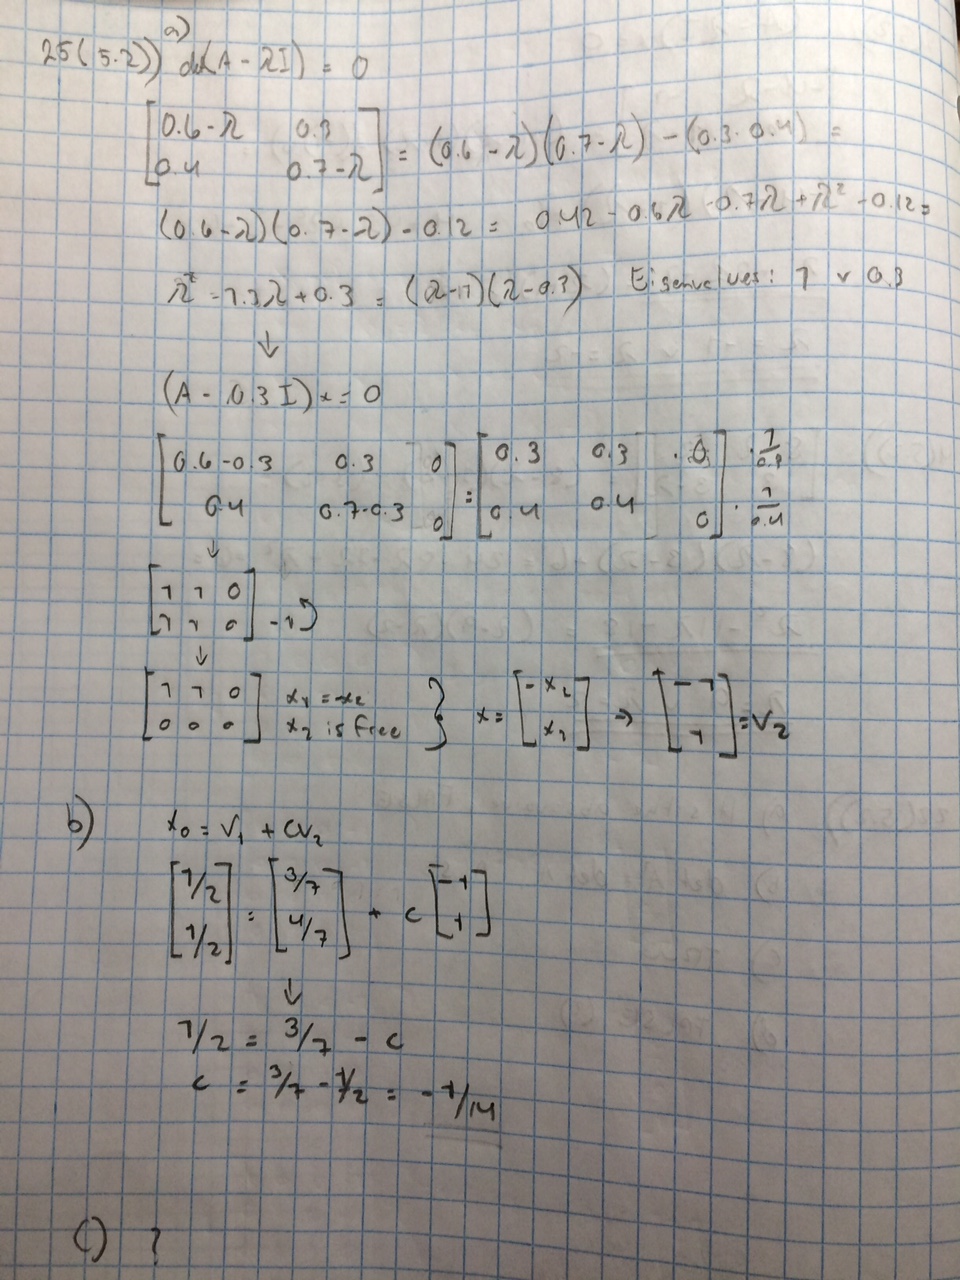 25(5.2)) a) det(A - λI) = 0
[0.6-λ 0.3
0.4 0.7-λ] = (0.6-λ)(0.7-λ) - (0.3·0.4) =
(0.6-λ)(0.7-λ) - 0.12 = 0.42 - 0.6λ - 0.7λ + λ² - 0.12 =
λ² - 1.3λ + 0.3 = (λ-1)(λ-0.3) Eigenvalues: 1 v 0.3
↓
(A - 0.3I)x = 0
[0.6-0.3 0.3 0
0.4 0.7-0.3 0] = [0.3 0.3 0
0.4 0.4 0] · 1/0.3
· 1/0.4
↓
[1 1 0
1 1 0] -1
↓
[1 1 0
0 0 0] x₁ = -x₂
x₂ is free } x = [-x₂
x₂] → [-1
1] = v₂
b) x₀ = v₁ + cv₂
[1/2
1/2] = [3/7
4/7] + c [-1
1]
↓
1/2 = 3/7 - c
c = 3/7 - 1/2 = -1/14
c) ?